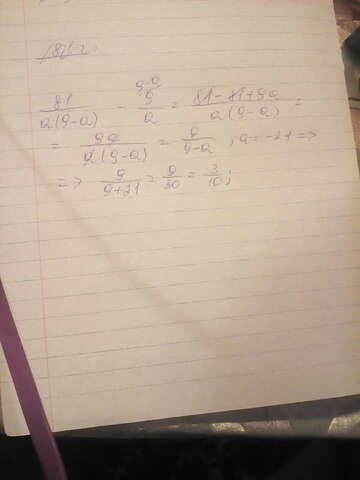 81/(a(9-a)) - 9/a ^9-a = (81-81+9a)/(a(9-a)) =
= 9a/(a(9-a)) = 9/(9-a) , a=-21 =>
=> 9/(9+21) = 9/30 = 3/10;